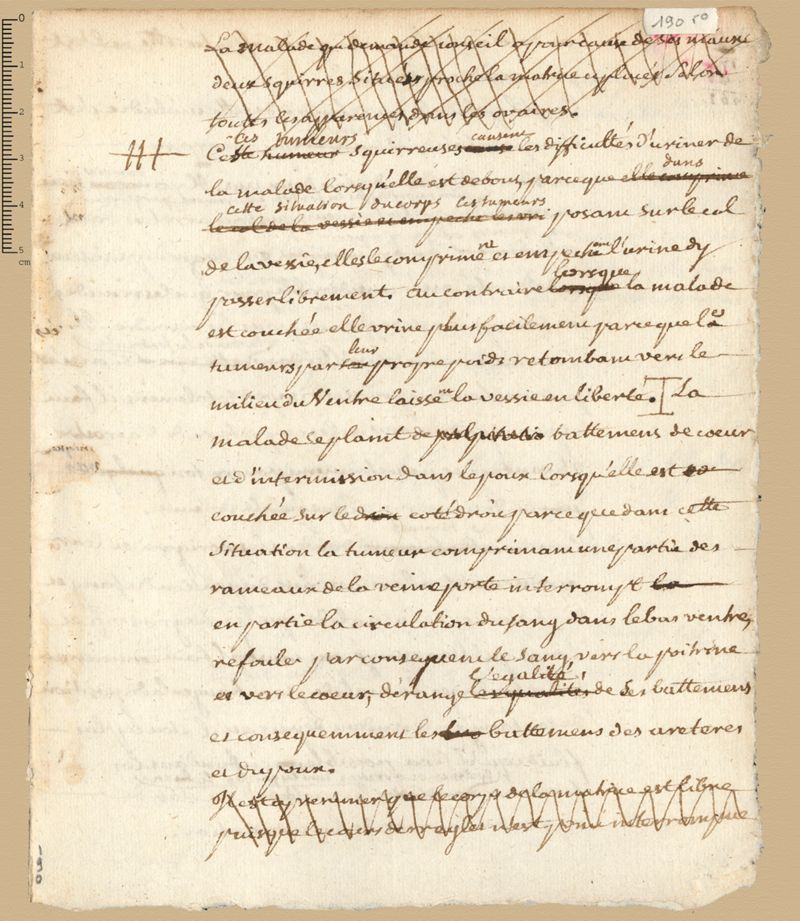 190 50
La malade qui demande conseil a pour cause de ses maux
deux squirres situés proche la matrice et placés selon
toutes les apparences dans les ovaires.
Ces tumeurs causent
Cette humeur squirreuses cause les difficultés d'uriner de
dans
la malade lorsqu'elle est debout, parceque elle comprime
cette situation du corps ces tumeurs
le col de la vessie et empeche les uri posant sur le col
de la vessie, elles le compriment et empechent l'urine dy
lorsque
passer librement. Au contraire lorsque la malade
est couchée elle urine plus facilement parceque les
leur
tumeurs par son propre poids retombant vers le
milieu du Ventre laissent la vessie en liberté. La
malade se plaint de palpitatio battemens de coeur
et d'intermission dans le poux lorsqu'elle est
couchée sur le droit coté droit parce que dans cette
situation la tumeur comprimant une partie des
rameaux de la veine porte interrompt la
en partie la circulation du sang dans le bas ventre,
refoule par consequent le sang vers la poitrine
l'egalité
et vers le coeur, dérange les qualités de ses battemens
et consequemment les battemens des arteres
et du poux.
Il est a presumer que le corps de la matrice est libre
puisque le cours des regles n'est point interrompue